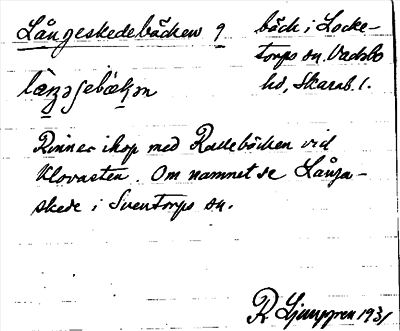 Långeskedebäcken 9
bäck i Locke-
torps sn. Vadsbo
hd, Skarab. l.
læŋəʃebækən
Rinner ihop med Rudebäcken vid
Klovasten. Om namnet se Långa-
skede i Sventorps sn.
R Ljunggren 1931